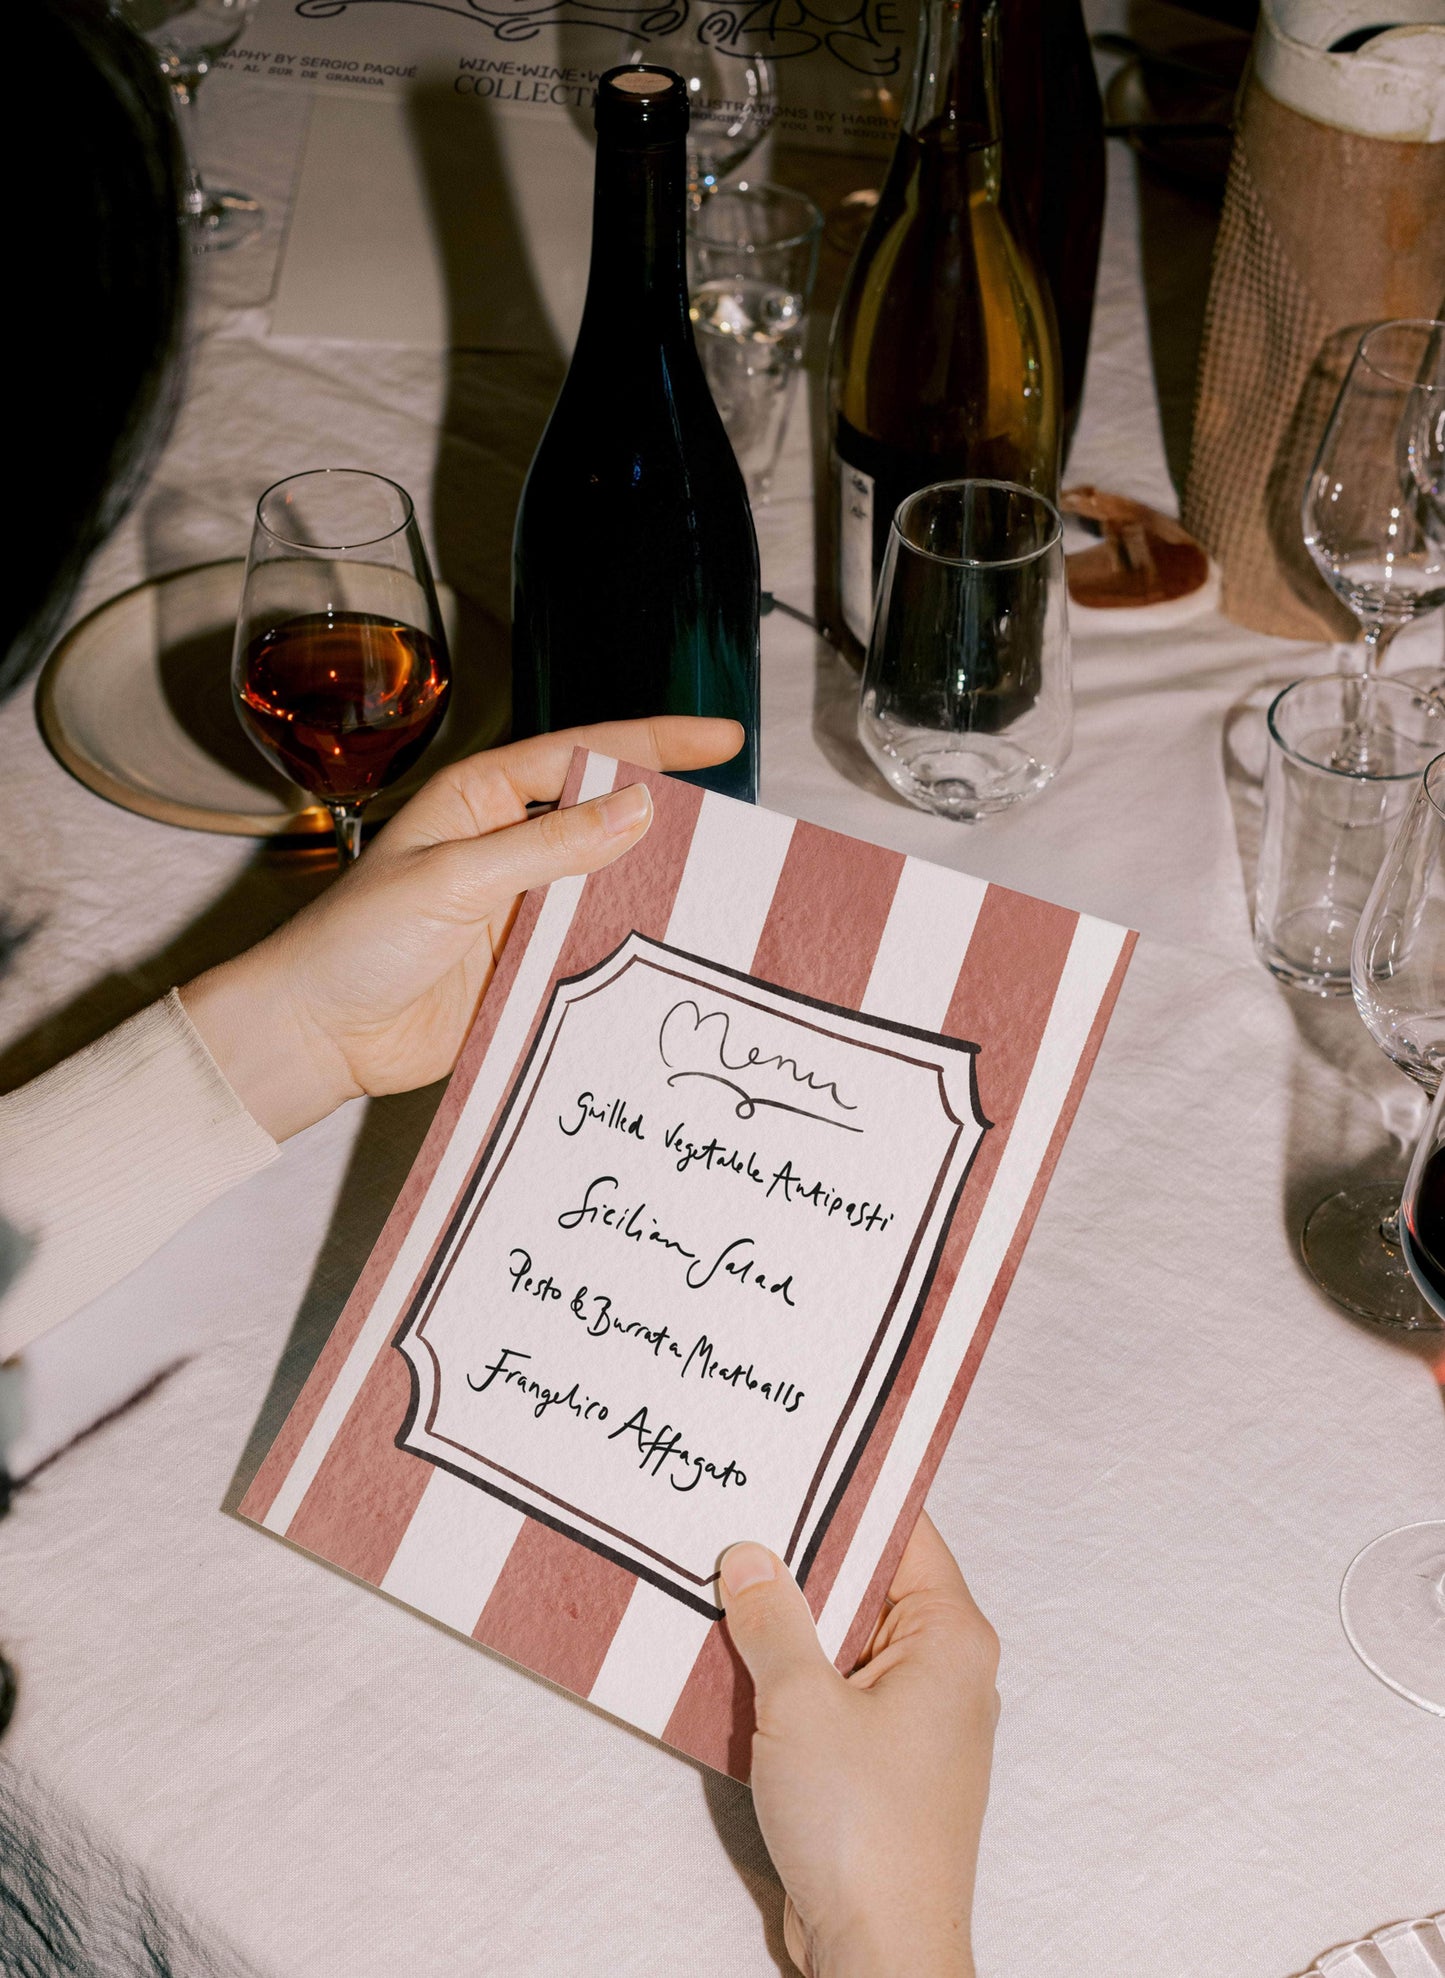 APHY BY SERGIO PAQUÉ
ON: AL SUR DE GRANADA
WINE•WINE•W
COLLECTI
LUSTRATIONS BY HARRY
ROUGHT TO YOU BY BENDIT
Menu
Grilled Vegetable Antipasti
Sicilian Salad
Pesto & Burrata Meatballs
Frangelico Affagato